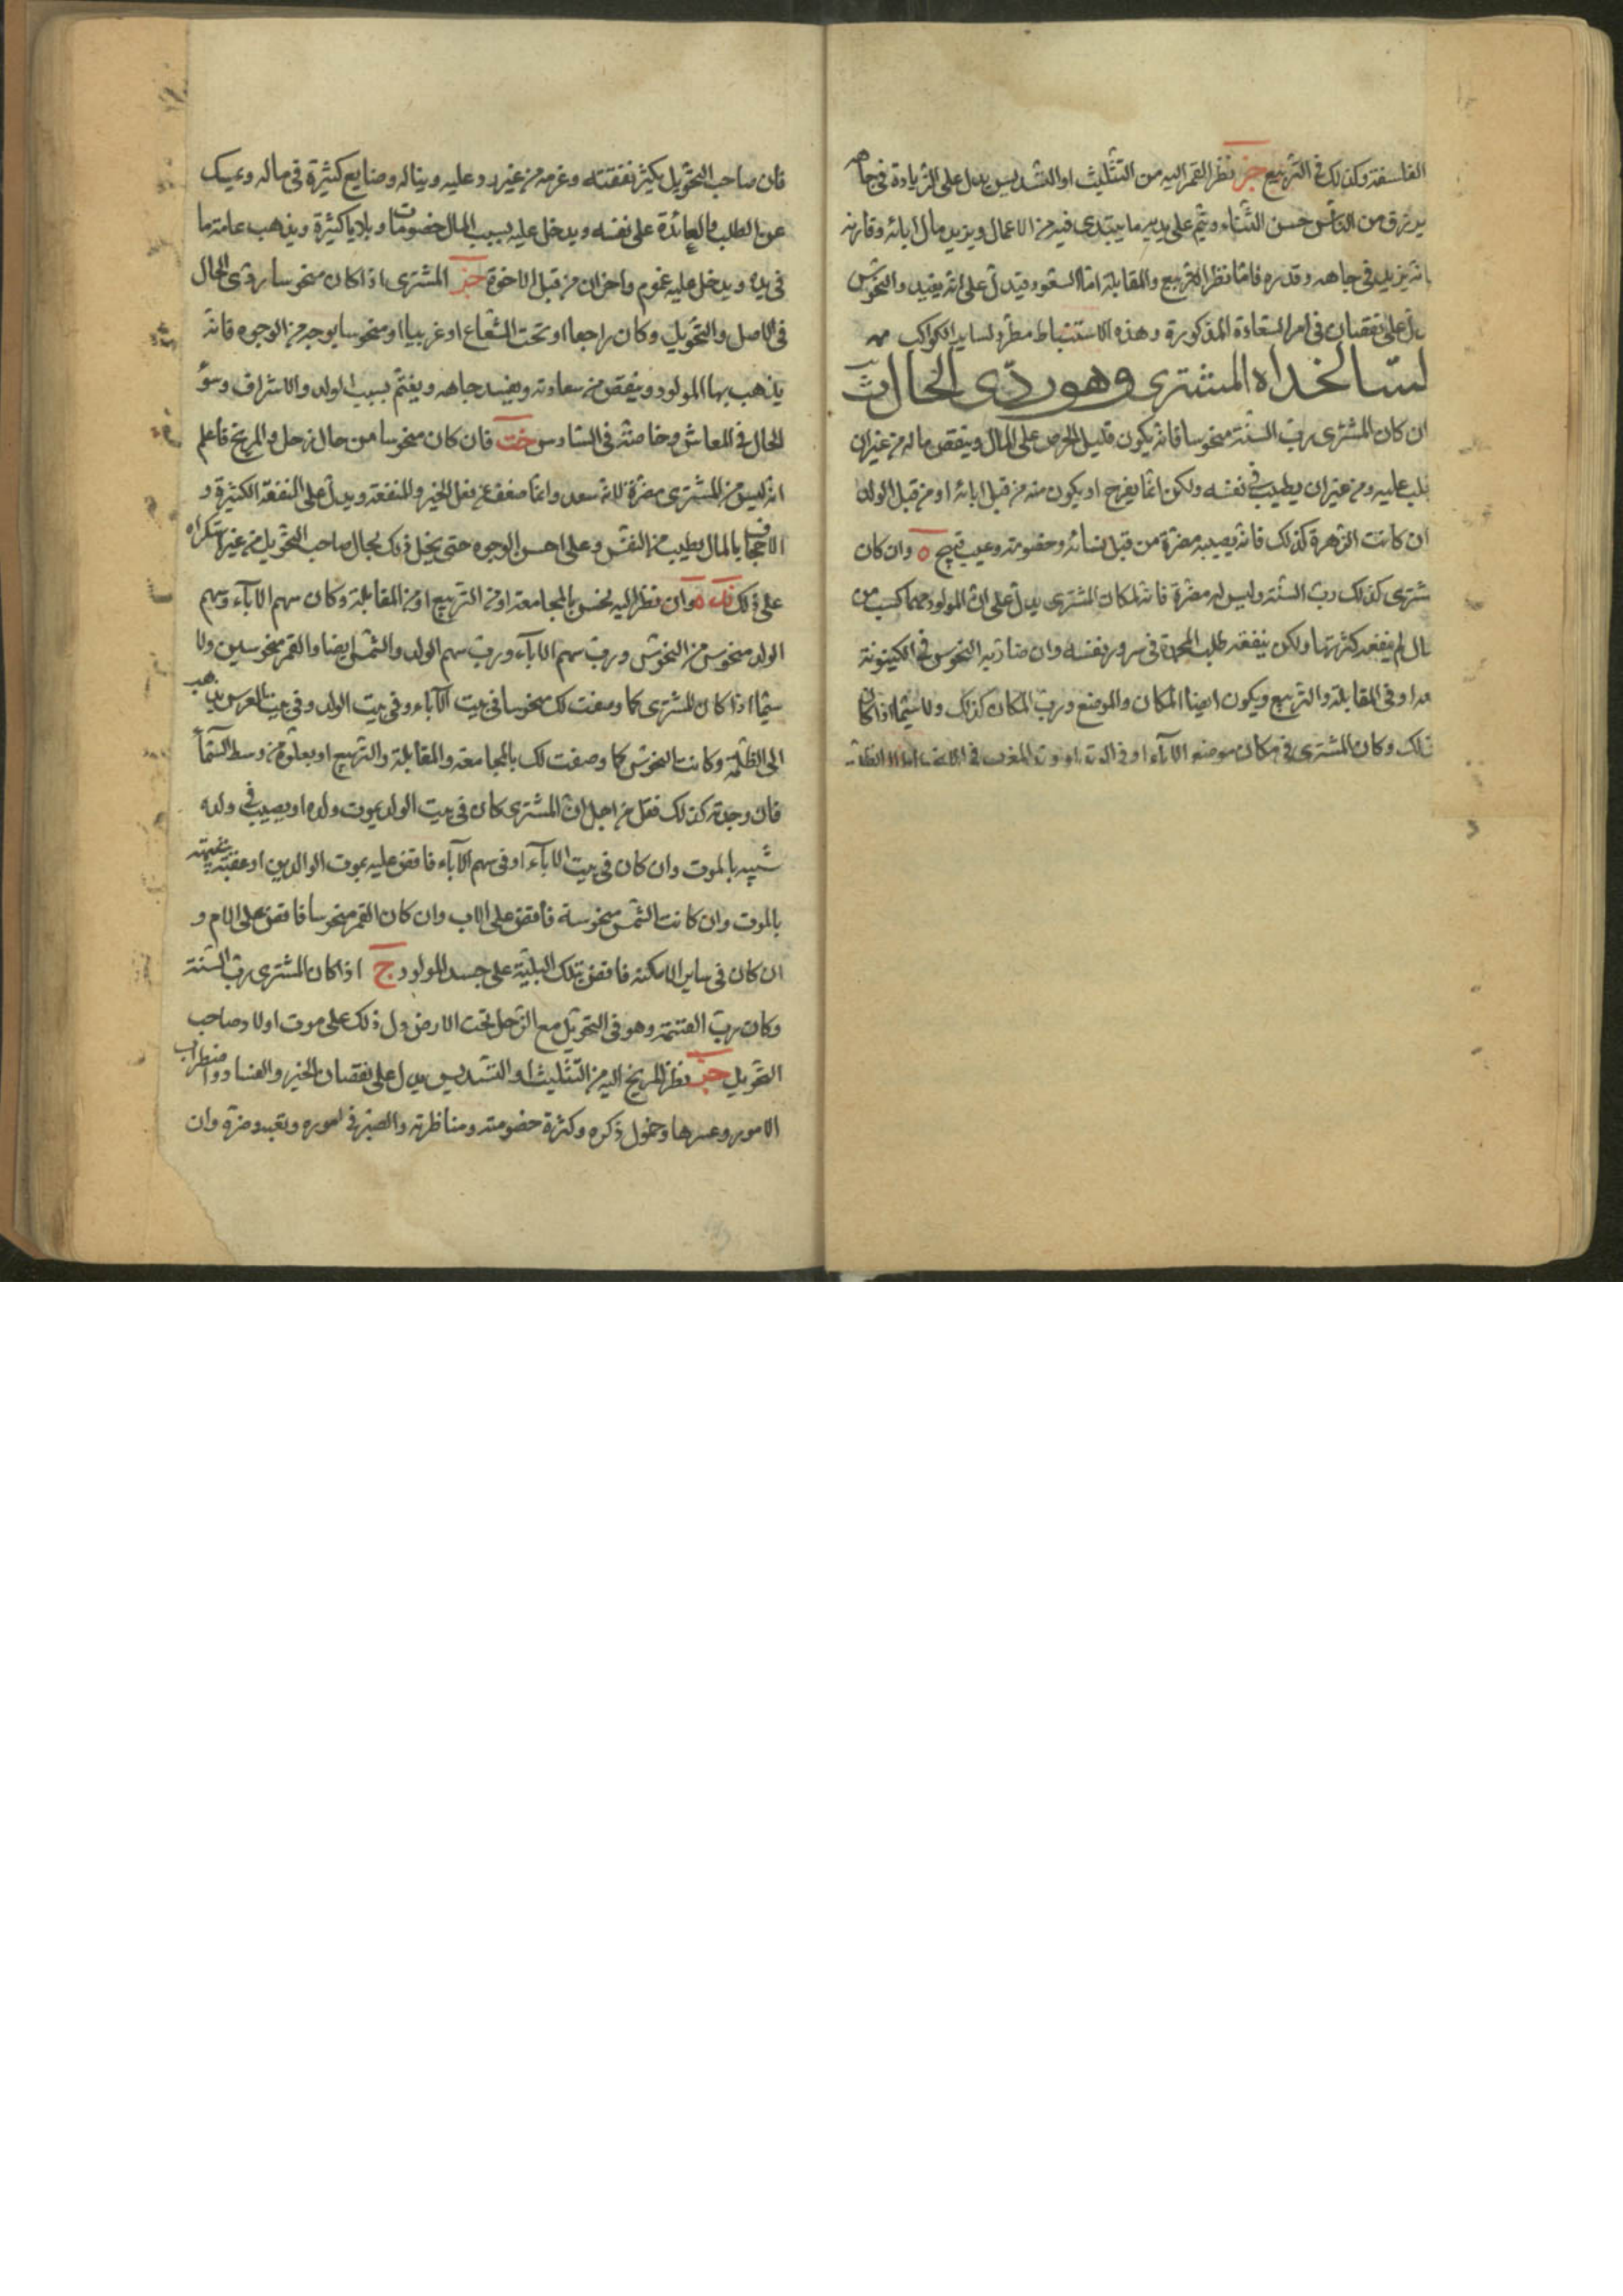 الفلسفة وكذلك في التربيع خبر نظر القمر اليه من التثليث او التسديس يدل على الزيادة في جاهه
يرزق من الناس حسن الثناء ويتم على يديه ما يبتدى فيه من الاعمال ويزيد مال ابائه وقارنه
انه يزيد في جاهه وقدره فاما نظر التربيع والمقابلة اما السعود فيدل على انه يفيد والنحوس
يدل على نقصان في امر السعادة المذكورة وهذه الاستنباط مطرد لساير الكواكب
لسالخداه المشترى وهو ردى الحال
ان كان المشترى رب السنة منحوسا فانه يكون قليل الحرص على المال وينقص ماله من غير ان
يغلب عليه ومن غير ان يطيب في نفسه ولكن انما يفرح او يكون منه من قبل ابائه او من قبل الولد
ان كانت الزهرة كذلك فانه يصيبه مضرة من قبل نسائه وخصومة وعيب قبيح ه وان كان
شترى كذلك رب السنة وليس له مضرة فانه لمكان المشترى يدل على ان المولود مهما كسب من
مال لم ينفعه كثرتها ولكن ينفقه طلب المحمدة في سرور نفسه وان ضادته النحوس في الكينونة
او في المقابلة والتربيع ويكون ايضا المكان والموضع ورب المكان كذلك ولا سيما اذا كان
ذلك وكان المشترى في مكان موضع الآباء او في الوتد او وتد المغرب في
فان صاحب التحويل يكثر نفقته وغرمه من غير رد عليه ويناله وضايع كثيرة في ماله وعيسك
عن الطلب والعائدة على نفسه ويدخل عليه بسبب المال خصومات وبلايا كثيرة ويذهب عامة ما
في يده ويدخل عليه غموم واحزان من قبل الاخوة خبر المشترى اذا كان منحوسا ردى الحال
في الاصل والتحويل وكان راجعا او تحت الشعاع او غربيا او منحوسا بوجه من الوجوه فانه
يذهب بهاء المولود وينقص من سعادته ويفسد جاهه ويغتم بسبب الولد والاشراف وسؤ
الحال في المعاش وخاصته في السادس خت فان كان منحوسا من حال زحل والمريخ فاعلم
انه ليس من المشترى مضرة لانه سعد وانما ضعف عن فعل الخير والمنفعة ويدل على النفقة الكثيرة و
الاجحاف بالمال بطيب من النفس وعلى احسن الوجوه حتى يخل ذلك بحال صاحب التحويل من غير استكراه
على ذلك نك ه وان نظر اليه نحس بالمجامعة او من التربيع او من المقابلة وكان سهم الآباء وسهم
الولد منحوس من النحوس ورب سهم الآباء ورب سهم الولد والشمس ايضا والقمر منحوسين ولا
سيما اذا كان المشترى كما وصفت لك منحوسا في بيت الآباء وفي بيت الولد وفي بيت العرس يذهب
الى الظلمة وكانت النحوس كما وصفت لك بالمجامعة والمقابلة والتربيع او يعلوه من وسط السماء
فان وجدته كذلك فقل من اجل ان المشترى كان في بيت الولد يموت ولده او يصيب في ولده
شبيه بالموت وان كان في بيت الآباء او في سهم الآباء فاقض عليه بموت الوالدين او عقبة شبيهة
بالموت وان كانت الشمس منحوسة فاقض على الاب وان كان القمر منحوسا فاقض على الام و
ان كان في ساير الامكنة فاقض بتلك البلية على جسد المولود ج اذا كان المشترى رب السنة
وكان رب القسمة وهو في التحويل مع الزحل تحت الارض دل ذلك على موت اولاد صاحب
التحويل خبر نظر المريخ اليه من التثليث او التسديس يدل على نقصان الخير والفساد واضطراب
الامور وعسرها وخمول ذكره وكثرة خصومته ومناظرته والضيق في اموره وتعب ومضرة وان